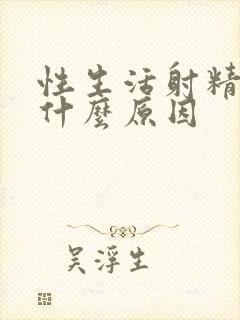 性生活射精
什麼原因
吴浮生